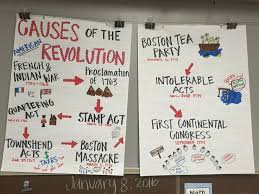 CAUSES OF THE
AMERICAN
REVOLUTION
FRENCH &
INDIAN WAR
Proclamation
of 1763
QUARTERING
ACT
STAMP ACT
TOWNSHEND
ACTS
TAXES
BOSTON
MASSACRE
BOSTON TEA
PARTY
INTOLERABLE
ACTS
FIRST CONTINENTAL
CONGRESS
SEPTEMBER 1774
January 8, 2016
Math